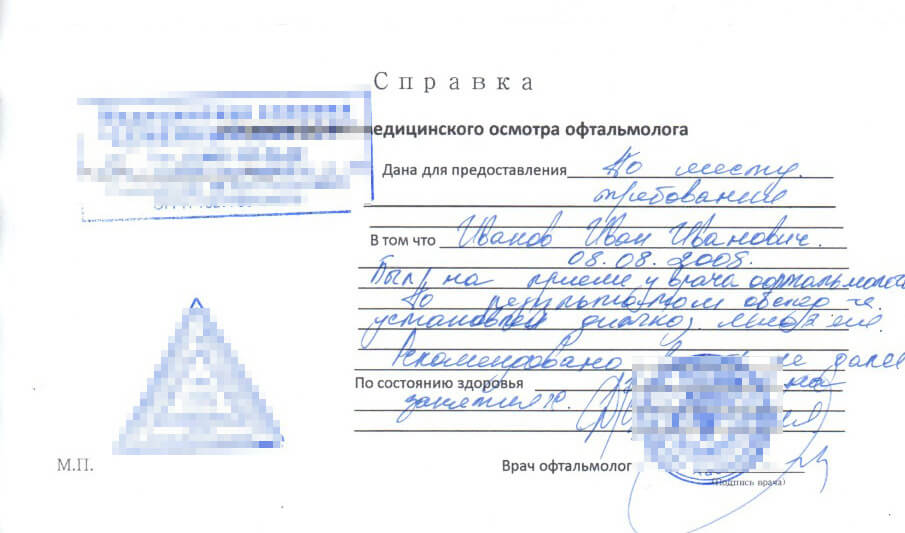 Справка
едицинского осмотра офтальмолога
Дана для предоставления По месту
требования
В том что Иванов Иван Иванович.
08.08.2005.
Был на приеме у врача офтальмолог
По результатом обслед
установлен диагноз
Рекомендовано далее
По состоянию здоровья на
занятиях.
Врач офтальмолог
(Подпись врача)
М.П.